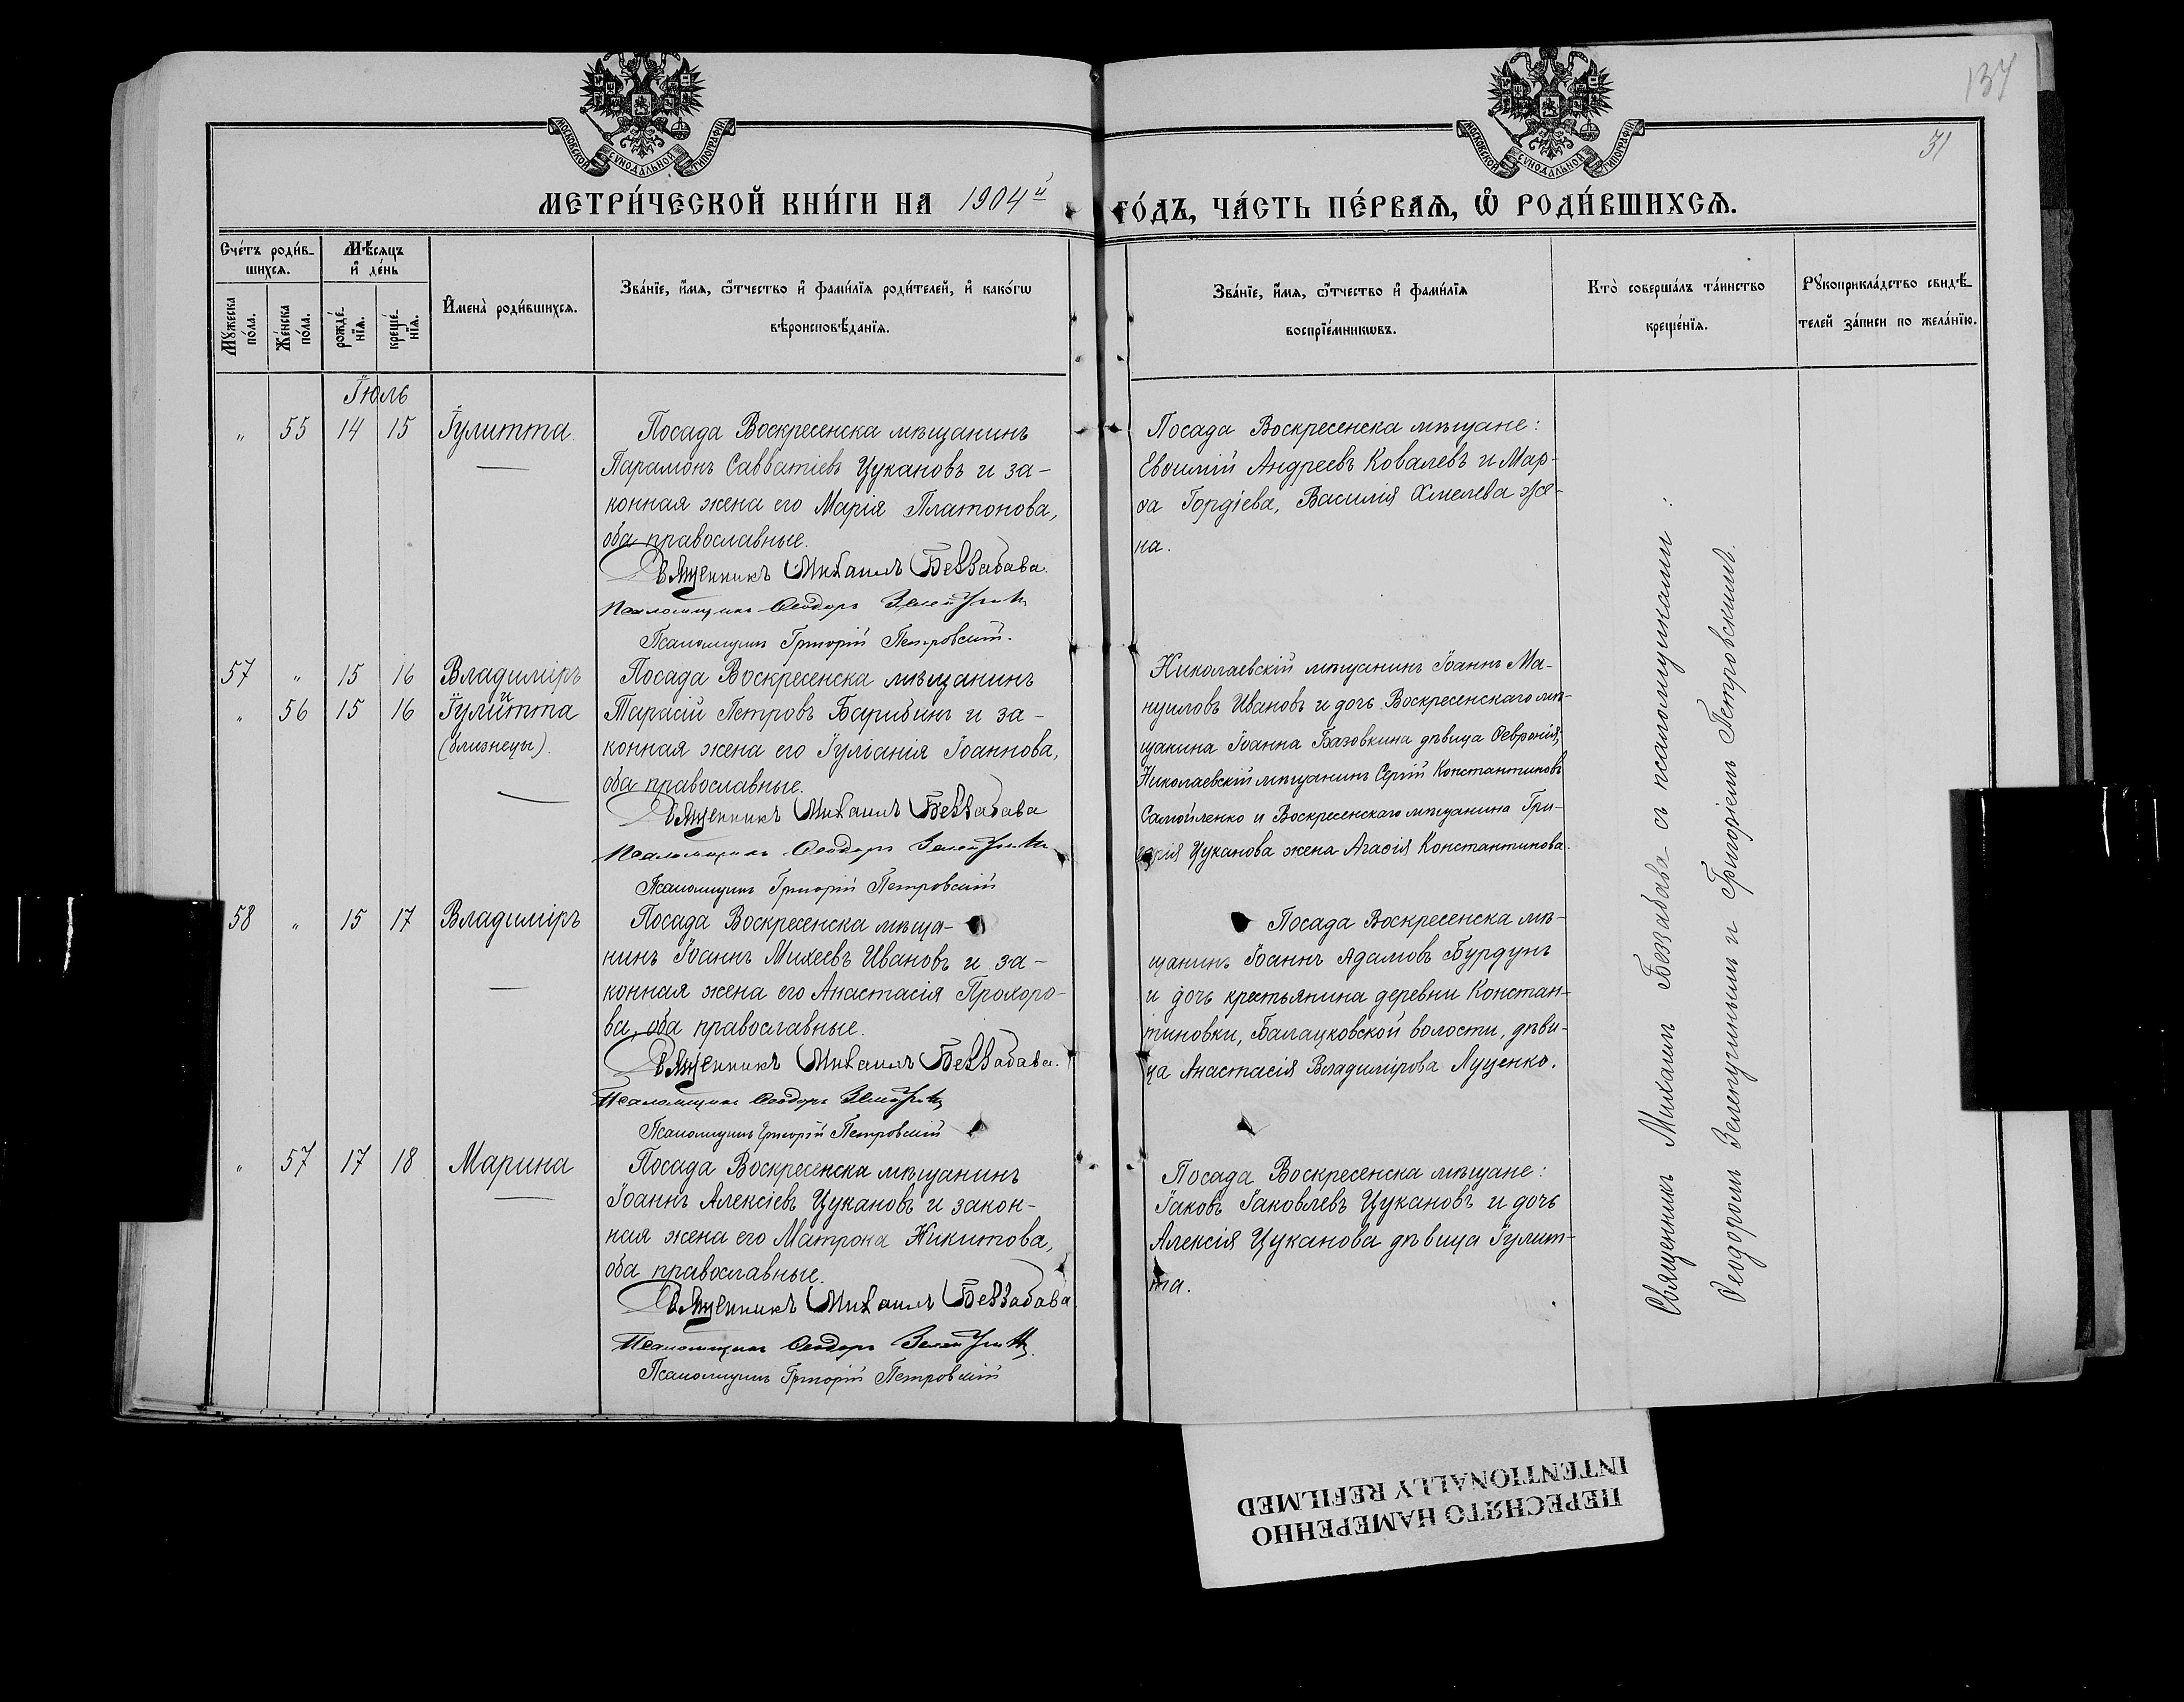 137
31
МОСКОВСКОЙ СѴНОДАЛЬНОЙ ТИПОГРАФІИ
МОСКОВСКОЙ СѴНОДАЛЬНОЙ ТИПОГРАФІИ
МЕТРИ́ЧЕСКОЙ КНИ́ГИ НА 1904й ГО́ДЪ, ЧА́СТЬ ПЕ́РВАѦ, Ѽ РОДИ́ВШИХСѦ.
Сче́тъ роди́в-
шихсѧ.
Мꙋ́жеска по́ла.
Же́нска по́ла.
Мѣ́сѧцъ
и҆ де́нь
рожде́-
нїѧ.
креще́-
нїѧ.
И҆мена̀ роди́вшихсѧ.
Зва́нїе, и҆́мѧ, ѻ҆́тчество и҆ фами́лїѧ роди́телей, и҆ како́гѡ
вѣроисповѣ́данїѧ.
Зва́нїе, и҆́мѧ, ѻ҆́тчество и҆ фами́лїѧ
воспрїе́мникѡвъ.
Кто̀ соверша́лъ та́инство
креще́нїѧ.
Рꙋкоприкла́дство свидѣ́-
телей за́писи по жела́нїю.
Іюль
" 55 14 15 Іулитта.
Посада Воскресенска мѣщанинъ
Парамонъ Савватіевъ Цукановъ и за-
конная жена его Марія Платонова,
оба православные.
Священникъ Михаилъ Беззабава.
Псаломщикъ Ѳеодоръ
Псаломщикъ Григорій Петровскій.
Посада Воскресенска мѣщане:
Евѳимій Андреевъ Ковалевъ и Мар-
ѳа Гордіева, Василія Хмелева же-
на.
57 " 15 16 Владиміръ
и
" 56 15 16 Іулитта
(близнецы).
Посада Воскресенска мѣщанинъ
Тарасій Петровъ Барибинъ и за-
конная жена его Іуліанія Іоаннова,
оба православные.
Священникъ Михаилъ Беззабава
Псаломщикъ Ѳеодоръ
Псаломщикъ Григорій Петровскій
Николаевскій мѣщанинъ Іоаннъ Ма-
нуиловъ Ивановъ и дочь Воскресенскаго мѣ-
щанина Іоанна Базовкина дѣвица Ѳевронія,
Николаевскій мѣщанинъ Сергій Константиновъ
Самойленко и Воскресенскаго мѣщанина Гри-
горія Цуканова жена Агаѳія Константинова.
58 " 15 17 Владиміръ
Посада Воскресенска мѣща-
нинъ Іоаннъ Михеевъ Ивановъ и за-
конная жена его Анастасія Прохоро-
ва, оба православные.
Священникъ Михаилъ Беззабава.
Псаломщикъ Ѳеодоръ
Псаломщикъ Григорій Петровскій
Посада Воскресенска мѣ-
щанинъ Іоаннъ Адамовъ Бурдунъ
и дочь крестьянина деревни Констан-
тиновки, Балацковской волости, дѣви-
ца Анастасія Владимірова Луценко.
" 57 17 18 Марина
Посада Воскресенска мѣщанинъ
Іоаннъ Алексіевъ Цукановъ и закон-
ная жена его Матрона Никитова,
оба православные.
Священникъ Михаилъ Беззабава
Псаломщикъ Ѳеодоръ
Псаломщикъ Григорій Петровскій
Посада Воскресенска мѣщане:
Іаковъ Іаковлевъ Цукановъ и дочь
Алексія Цуканова дѣвица Іулит-
та.
Священникъ Михаилъ Беззабава съ псаломщиками:
Ѳеодоромъ и Григоріемъ Петровскимъ.
ПЕРЕСНЯТО НАМЕРЕННО
INTENTIONALLY REFILMED